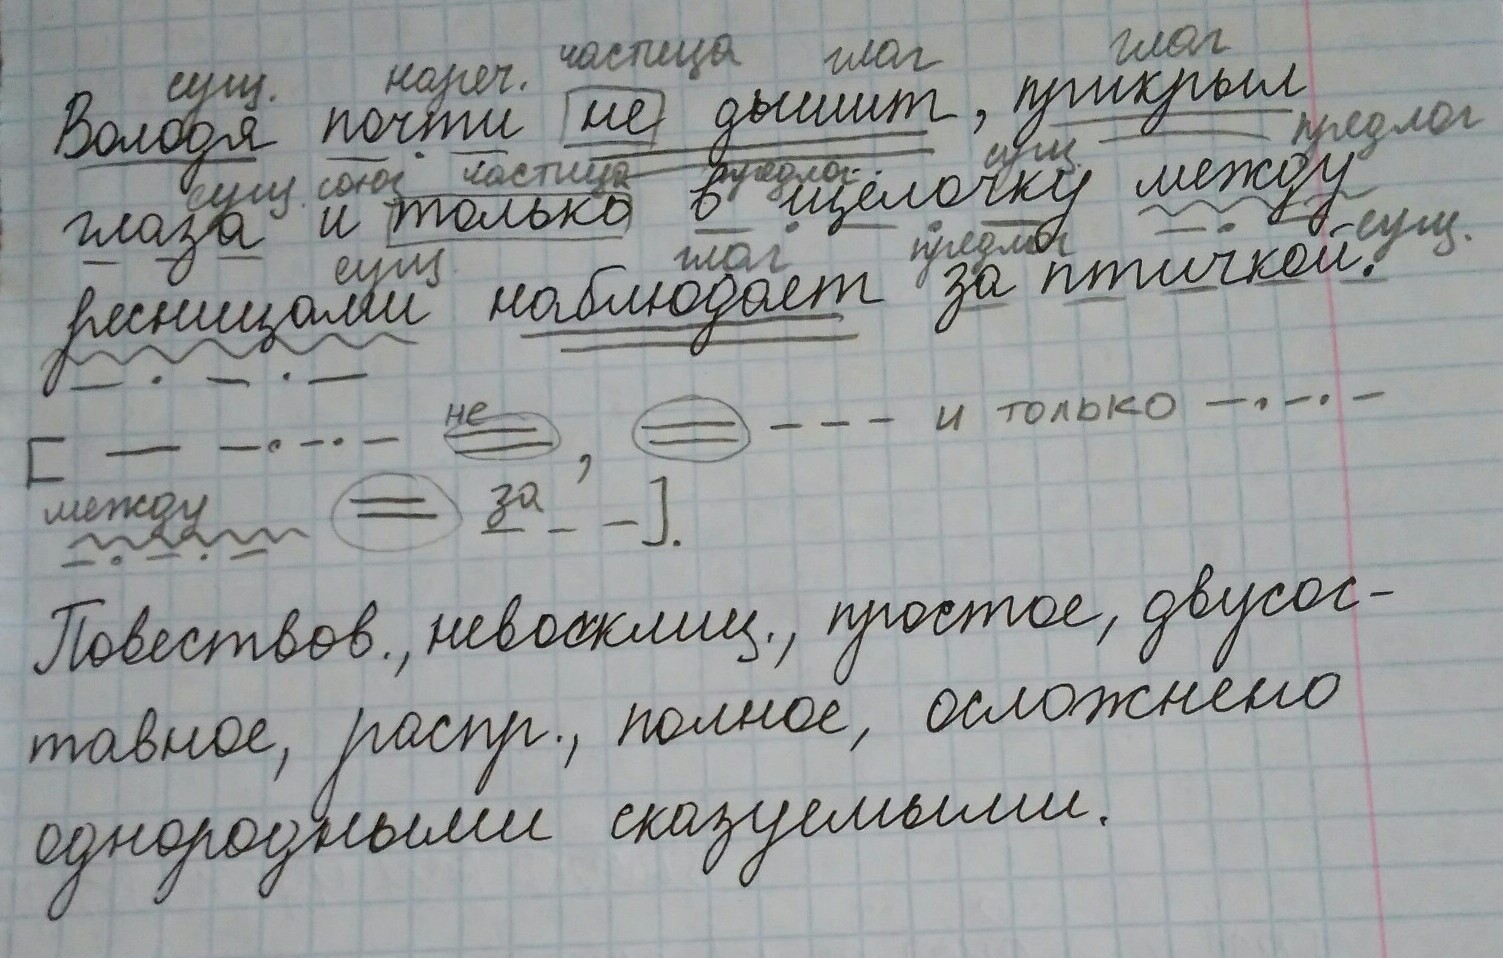 сущ. нареч. частица глаг глаг
Володя почти не дышит, прикрыл
сущ. союз частица предлог сущ. предлог
глаза и только в щёлочку между
сущ. глаг предлог сущ.
ресницами наблюдает за птичкой.
[ не , и только
между за ].
Повествов., невосклиц., простое, двусос-
тавное, распр., полное, осложнено
однородными сказуемыми.